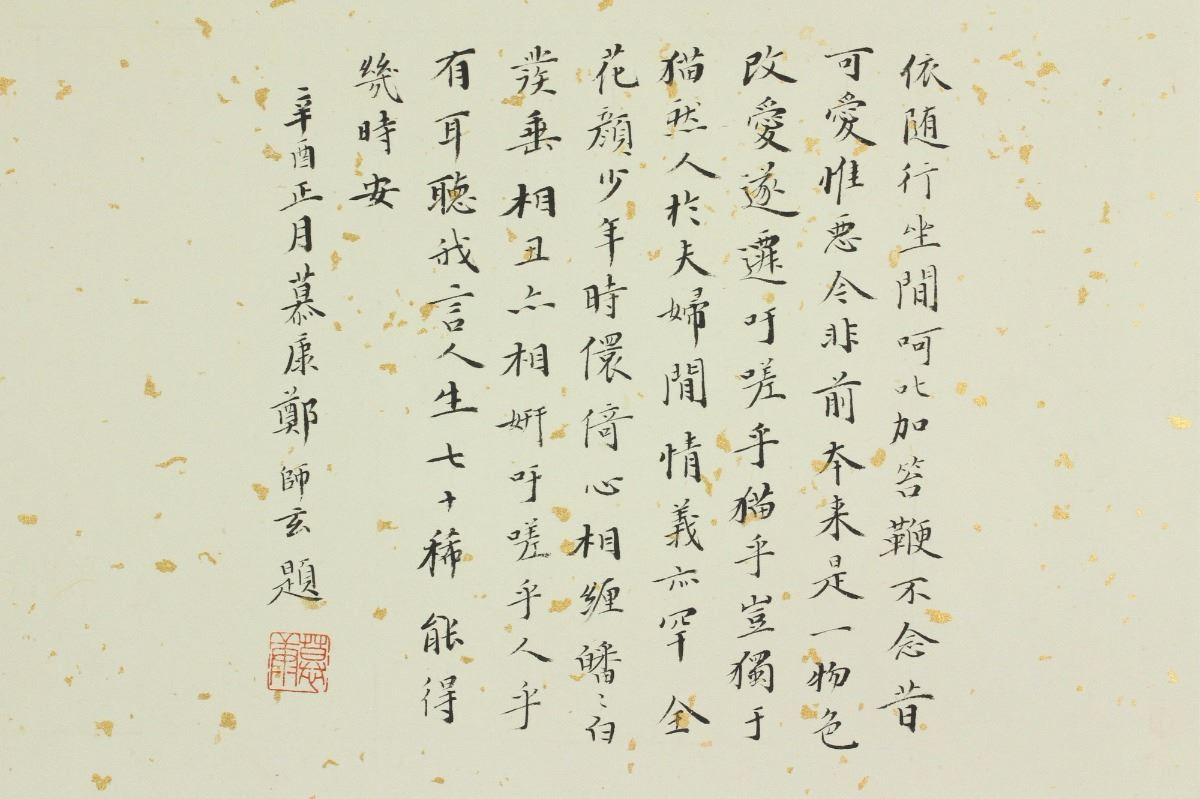 依随行坐間呵叱加笞鞭不念昔
可愛惟惡今非前本来是一物色
改愛遂遷吁嗟乎猫乎豈獨于
猫然人於夫婦間情義亦罕全
花顔少年時儇倚心相纏皤〻白
髮垂相丑亦相妍吁嗟乎人乎
有耳聽我言人生七十稀能得
幾時安
辛酉正月慕康鄭師玄題
慕康